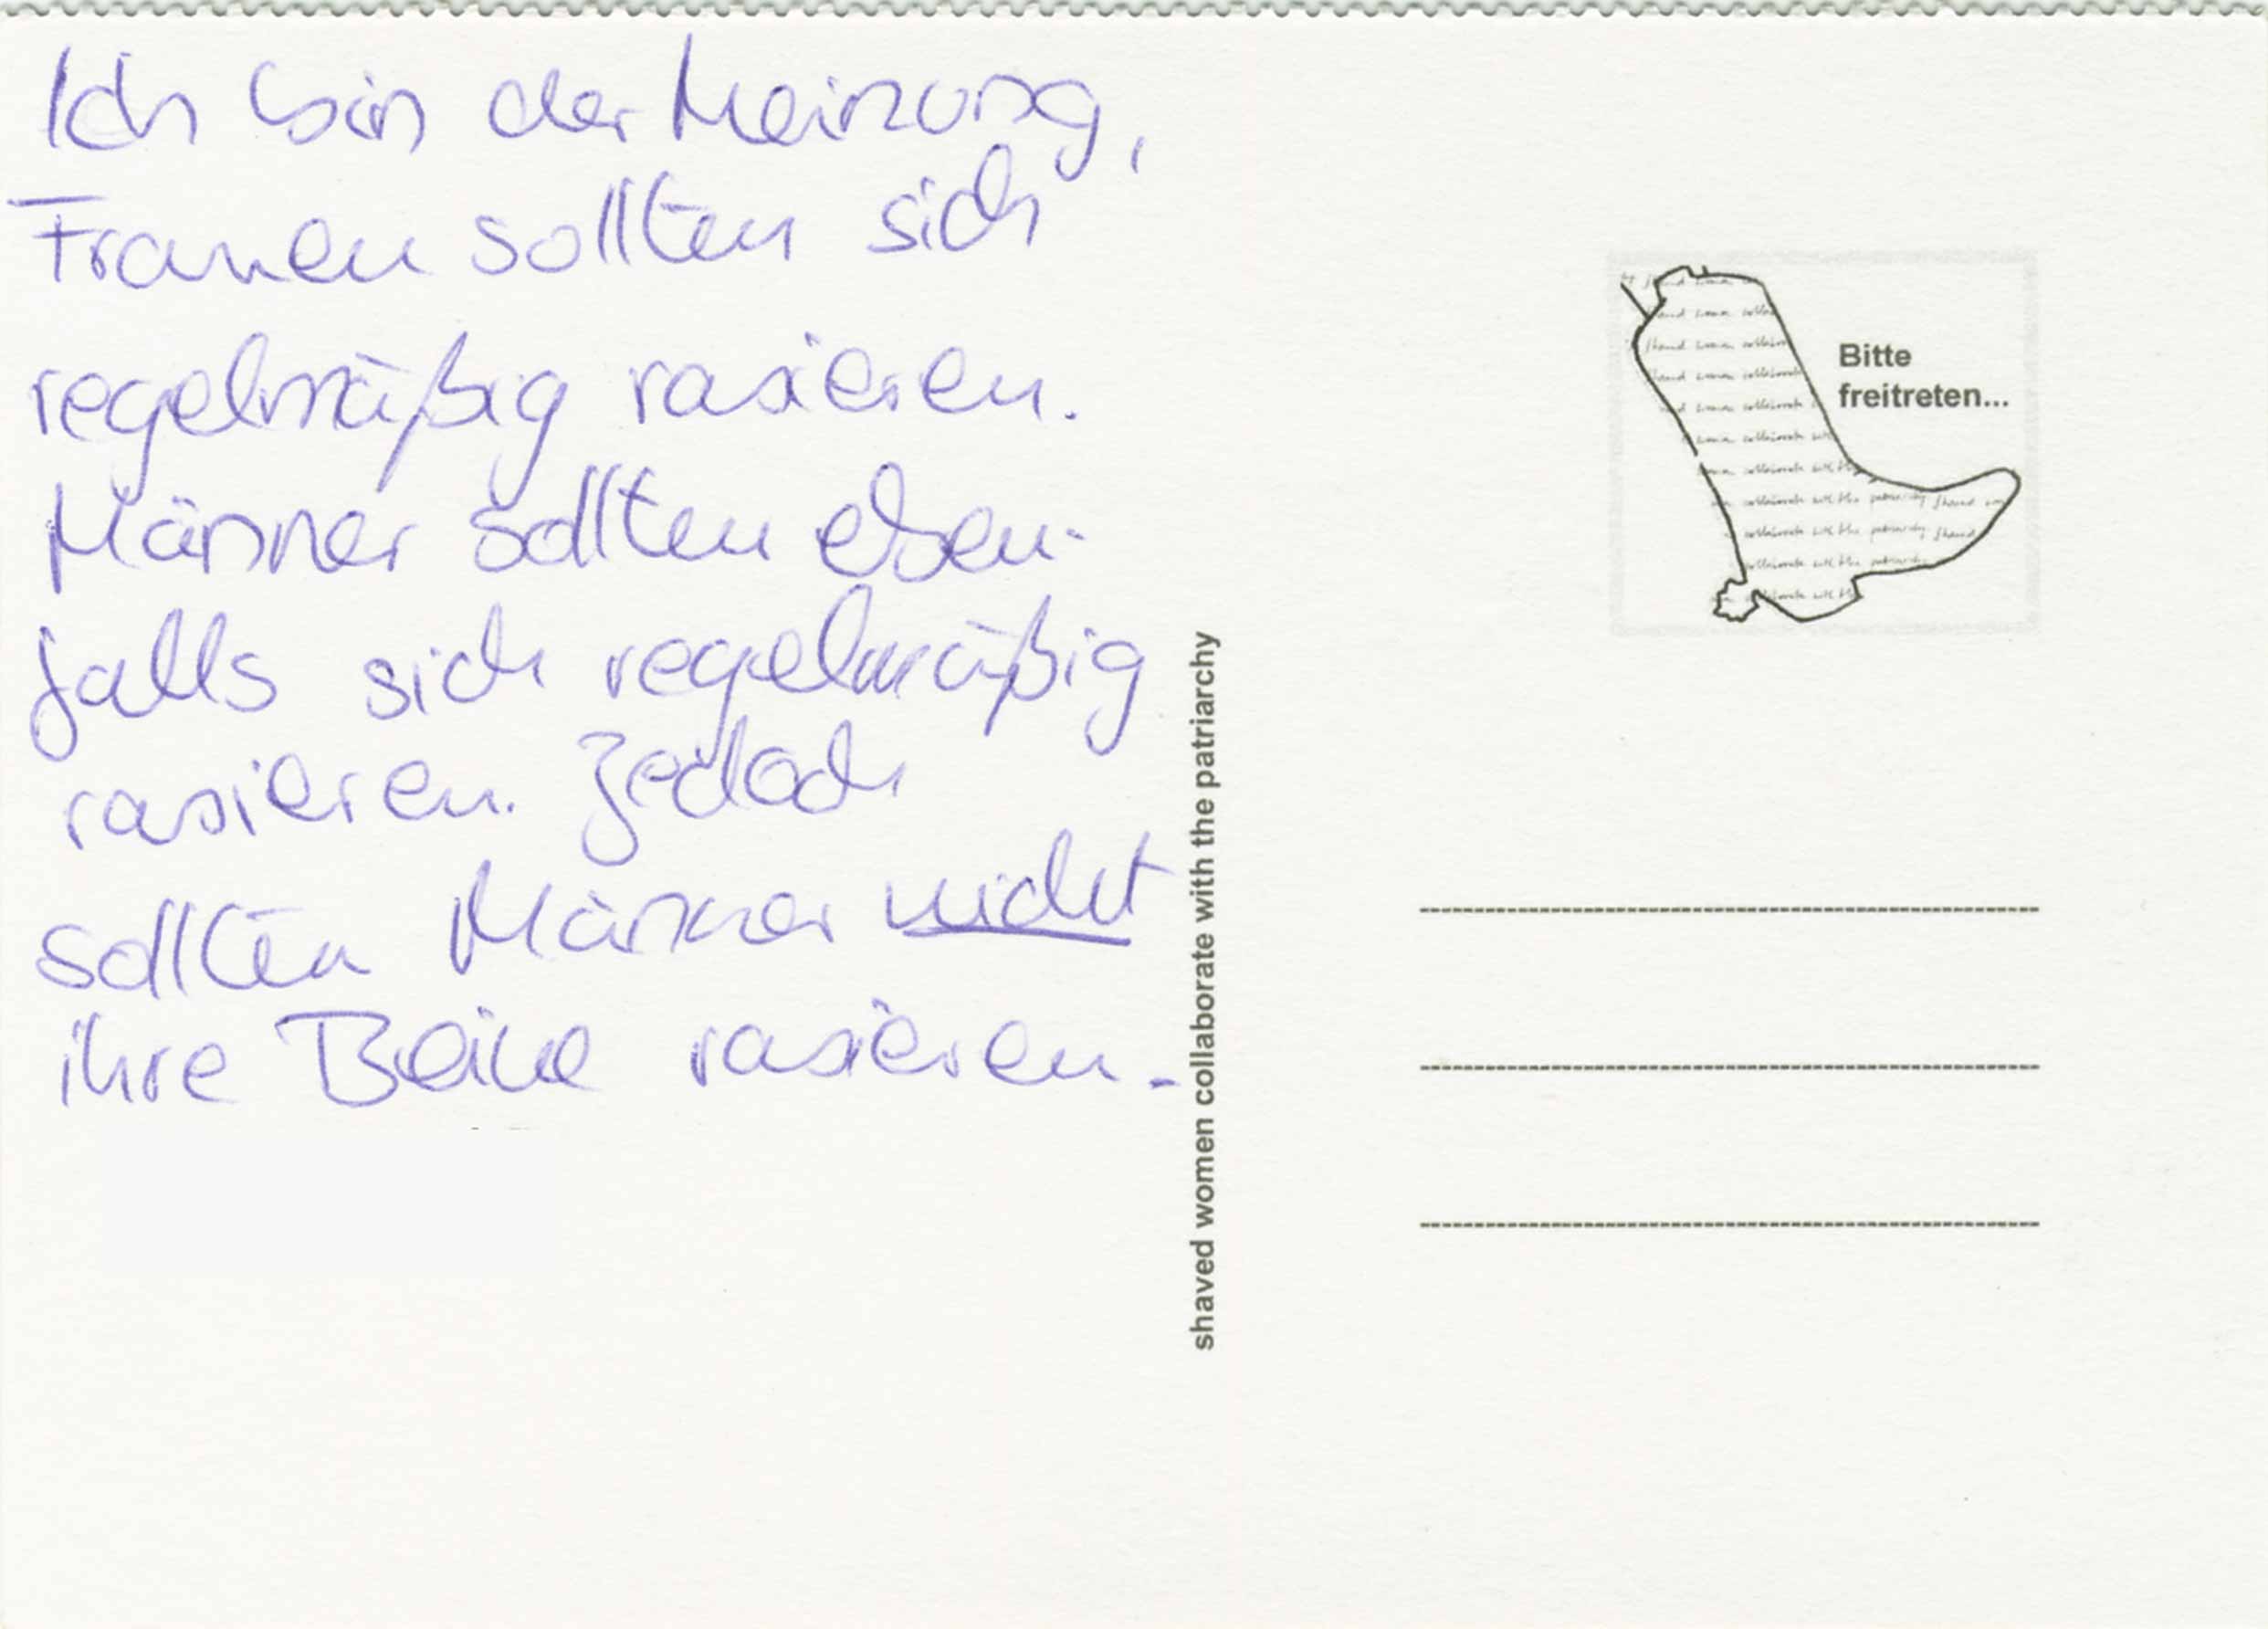 Ich bin der Meinung,
Frauen sollten sich
regelmäßig rasieren.
Männer sollten eben-
falls sich regelmäßig
rasieren. Jedoch
sollten Männer nicht
ihre Beine rasieren.
shaved women collaborate with the patriarchy
Bitte
freitreten...